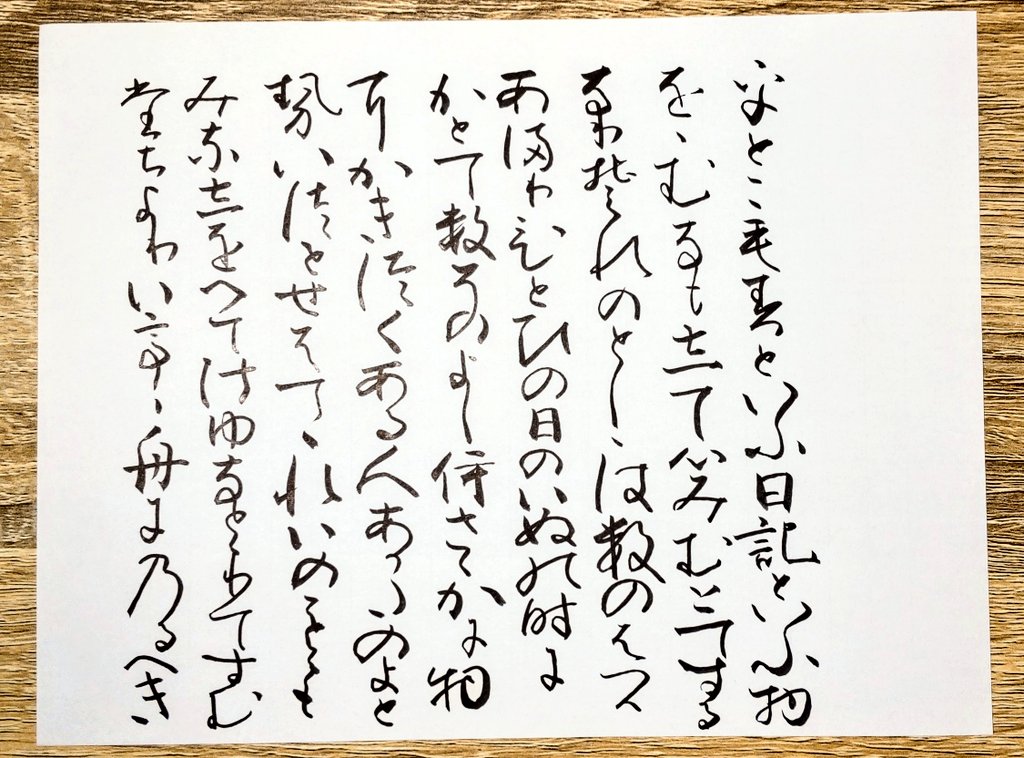 乎とこもすといふ日記といふ物
をゝむなもして心みむとてする
なりそれのとしゝはすのはつ
かあまりひとひの日のいぬの時に
かとてすそのよしいさゝかに物
にかきつくある人あかたのよと
せいつとせはてゝれいのことゝも
みなしをへてけゆなとゝりてすむ
たちよりいてゝ舟にのるへき